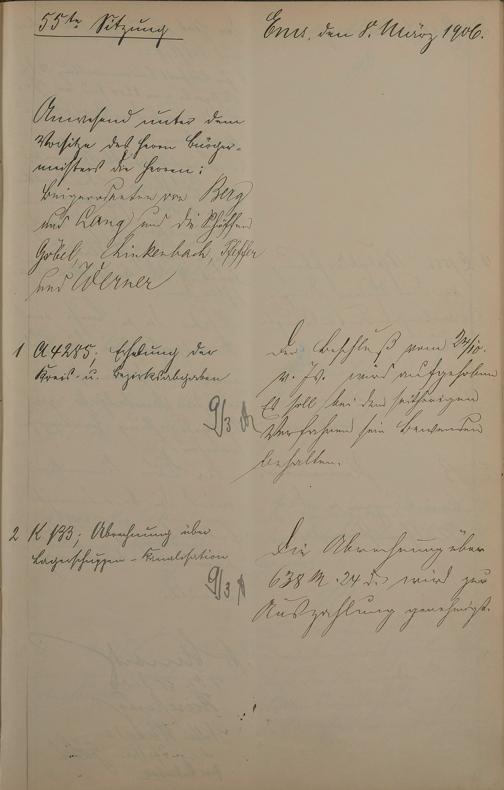 55te Sitzung
Ems, den 8. März 1906.
Anwesend unter dem
Vorsitze des Herrn Bürger-
meisters die Herren:
Beigeordneten von Berg
und Lang und die Schöffen
Göbel, Linkenbach, Pfeffer
und Werner
1 A 4285; Erhebung der
Kreis- u. Bezirksabgaben
9/3
Der Beschluß vom 24/10.
v. Js. wird aufgehoben
Es soll bei dem seitherigen
Verfahren sein Bewenden
behalten.
2 K 133; Abrechnung über
Lagerschuppen-Kanalisation
9/3
Die Abrechnung über
638 M 24 d. wird zur
Auszahlung genehmigt.